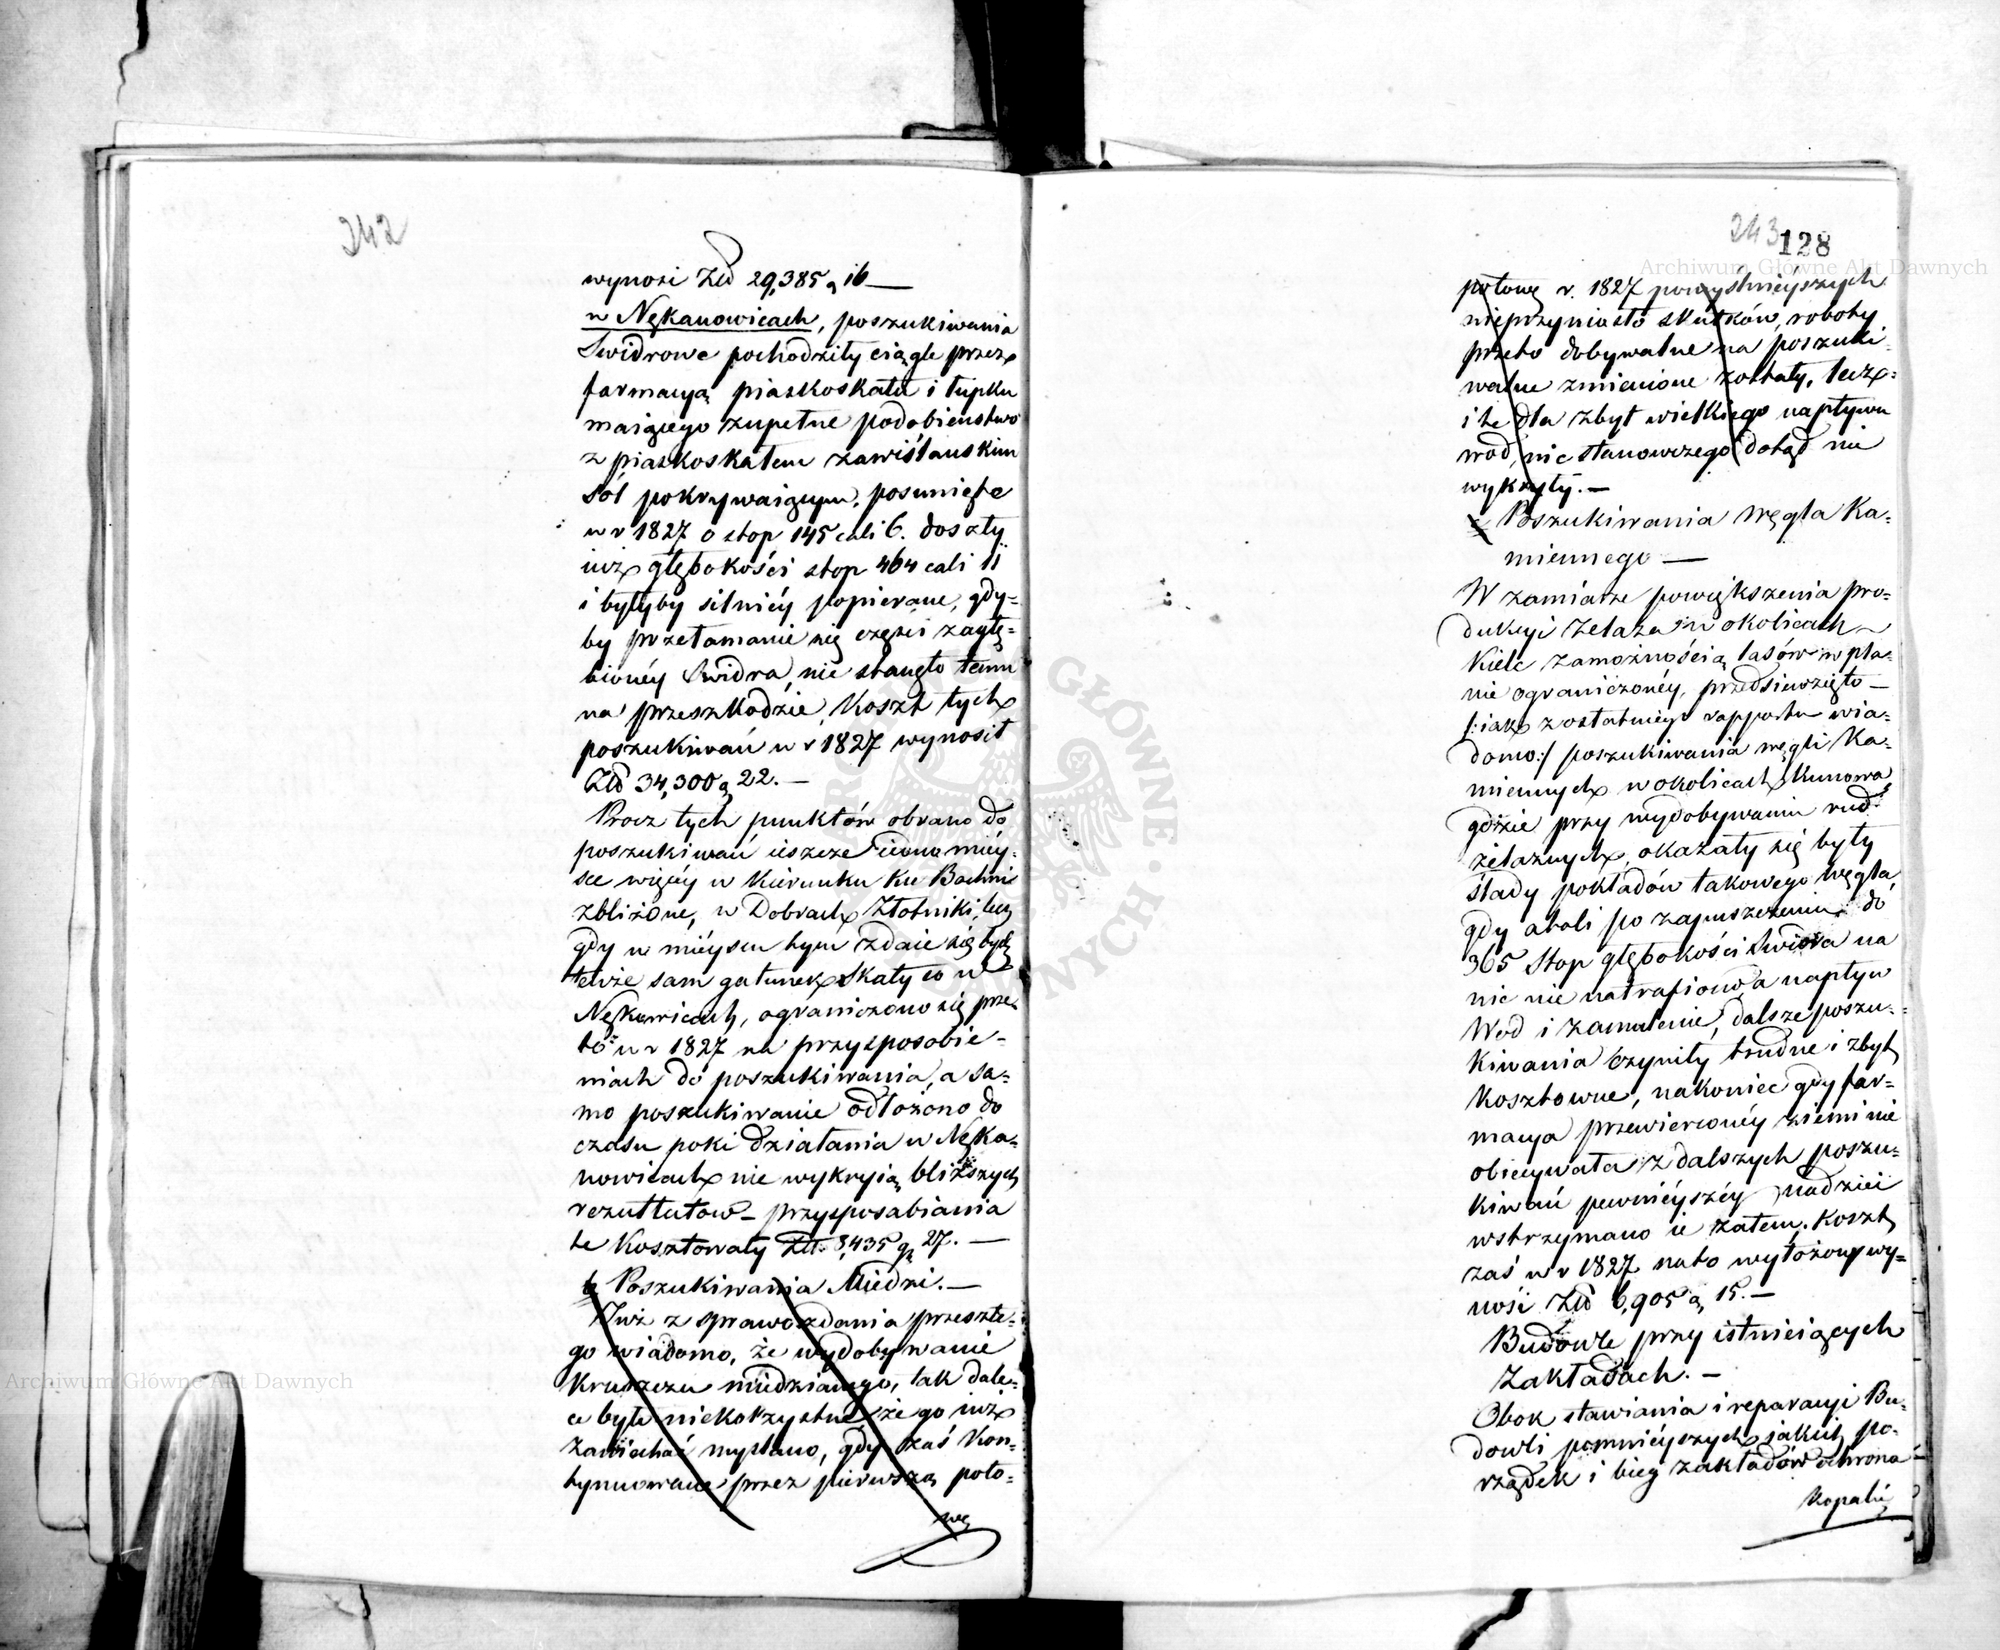 242
wynosi Złł 29,385 g 16 —
w Nękanowicach, poszukiwania
Swidrowe pochodziły ciągle przez
formacyą piaskoskału i łupku
maiącego zupełne podobieństwo
z piaskoskałem zawiślauskim
sól pokrywaiącym, posunięte
w r 1827 o stop 145 cali 6. doszły
iuż głębokości stop 464 cali 11
i byłyby silniéy popierane, gdy=
by przełamanie się części zagłę=
bionéy Swidra, nie stanęło temu
na przeszkodzie, Koszt tych
poszukiwań w r 1827 wynosił
Złł 34,300 g 22. —
Procz tych punktów obrano do
poszukiwań ieszcze iedno miéy=
sce więcéy w kierunku ku Bochni
zbliżone, w Dobrach Złotniki, lecz
gdy w miéyscu tym zdaie się bydź
tenże sam gatunek skały co w
Nękowicach, ograniczono się prze
to w r 1827 na przysposobie=
niach do poszukiwania, a sa=
mo poszukiwanie odłożono do
czasu poki działania w Nęka=
nowicach nie wykryią bliższych
rezultatow – przysposabiania
te kosztowały Złł. 3,435 g 27. —
b Poszukiwania Miedzi. —
Już z sprawozdania przeszłe=
go wiadomo, że wydobywanie
kruszczu miedzianego, tak dale=
ce było niekorzystne, że go iuż
zaniechać myslano, gdy zaś kon=
tynuowane przez pierwszą poło=
wę
243
128
połowę r. 1827 pomyslnieyszych
nieprzyniosło skutków, roboty
przeto dobywalne na poszuki=
walne zmienione zostały, lecz=
i te dla zbyt wielkiego napływu
wod, nic stanowczego dotąd nie
wykryły. —
c Poszukiwania węgla Ka=
miennego —
W zamiarze powiększenia pro=
dukcyi żelaza w okolicach
Kielc zamożnością lasów w pła=
nie ograniczonéy, przedsiewzięto —
/:iak z ostatniego rapportu wia=
domo:/ poszukiwania węgli Ka=
miennych w okolicach Kunowa,
gdzie przy wydobywaniu rud
żelaznych, okazały się były
ślady pokładów takowego węgla,
gdy atoli po zapuszczeniu do
365 Stop głębokości Swidra na
nic nie natrafiono, a napływ
Wod i zamulenie, dalsze poszu=
kiwania czyniły trudne i zbyt
kosztowne, nakoniec gdy for=
macya przewierconéy ziemi nie
obiecywała z dalszych poszu=
kiwań pewniéyszéy nadziei
wstrzymano ie zatem, koszt
zaś w r 1827 na to wyłożony wy=
nosi Złł 6,905 g 15. —
Budowle przy istnieiących
Zakładach. —
Obok stawiania i reparacyi Bu=
dowli pomnieyszych, iakich po=
rządek i bieg zakładów ochrona
Kopalń
Archiwum Główne Akt Dawnych
Archiwum Główne Akt Dawnych